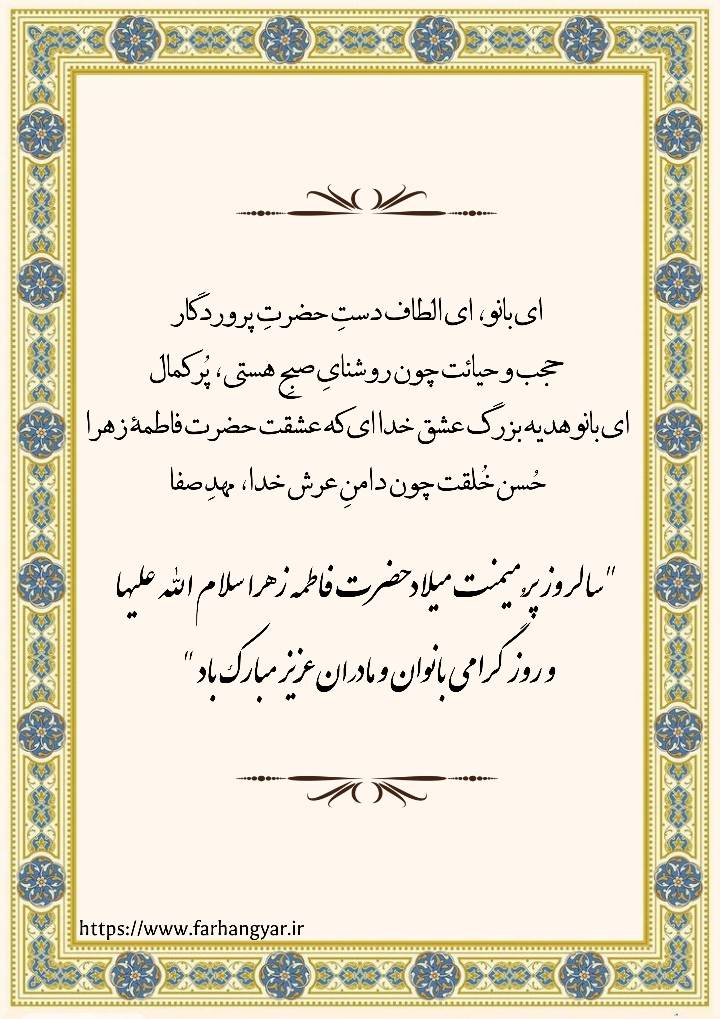 ای بانو، ای الطاف دستِ حضرتِ پروردگار
حجب و حیائت چون روشنایِ صبحِ هستی، پُر کمال
ای بانو هدیه بزرگ عشق خدا ای که عشقت حضرت فاطمهٔ زهرا
حُسن خُلقت چون دامنِ عرش خدا، مهدِ صفا
"سالروز پرُ میمنت میلاد حضرت فاطمه زهرا سلام الله علیها
و روز گرامی بانوان و مادران عزیز مبارک باد"
https://www.farhangyar.ir